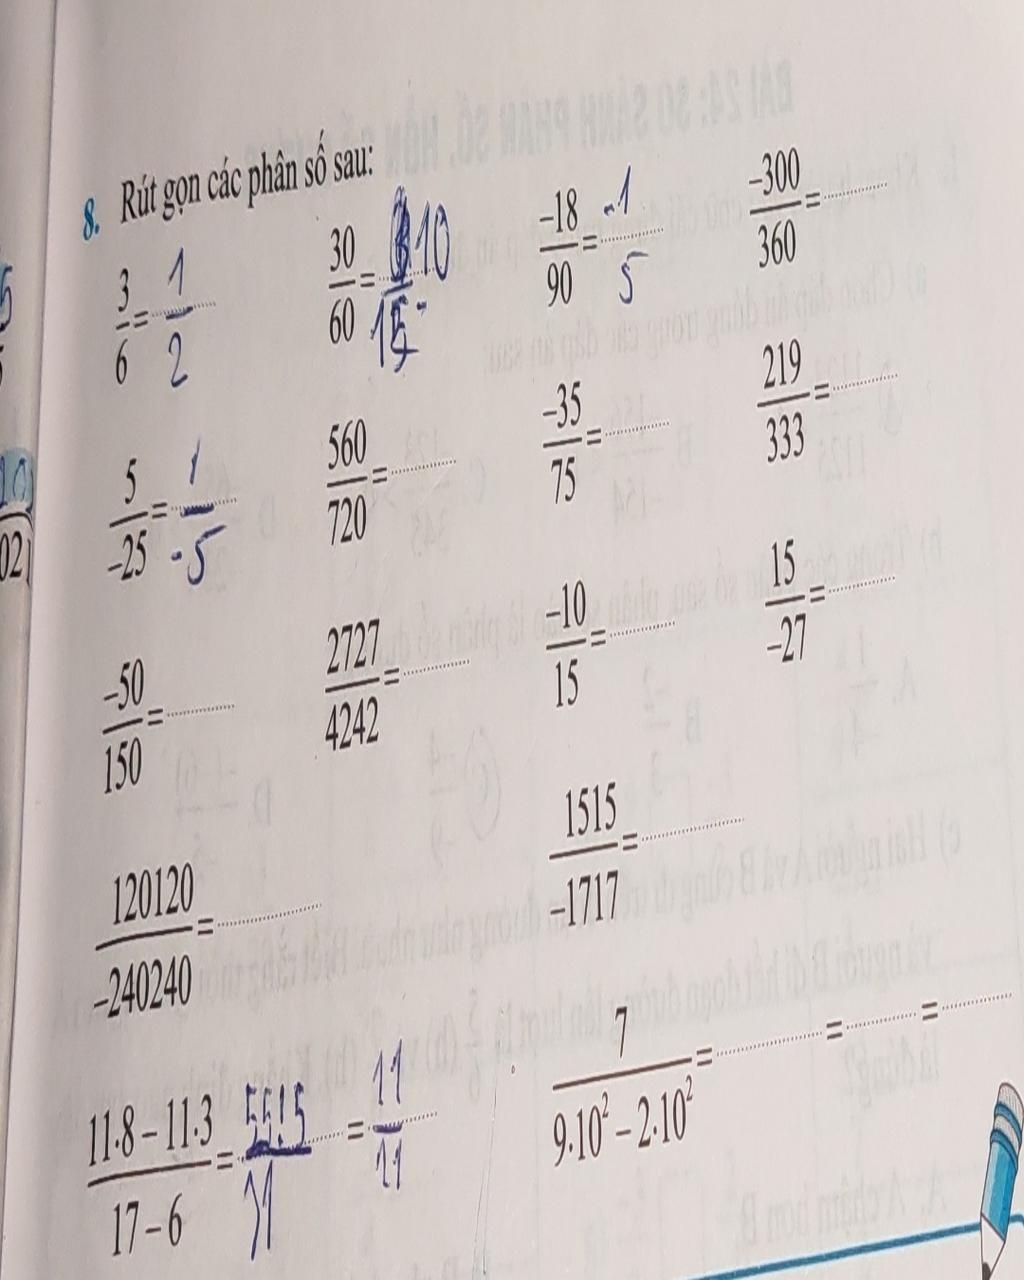 8. Rút gọn các phân số sau:
3/6 = 1/2
30/60 = 10/15
-18/90 = -1/5
-300/360 = ..........
5/-25 = 1/-5
560/720 = ..........
-35/75 = ..........
219/333 = ..........
-50/150 = ..........
2727/4242 = ..........
-10/15 = ..........
15/-27 = ..........
120120/-240240 = ..........
1515/-1717 = ..........
11.8 – 11.3/17 – 6 = .......... = 11/11
7/9.10² – 2.10² = .......... = .......... = ..........
02